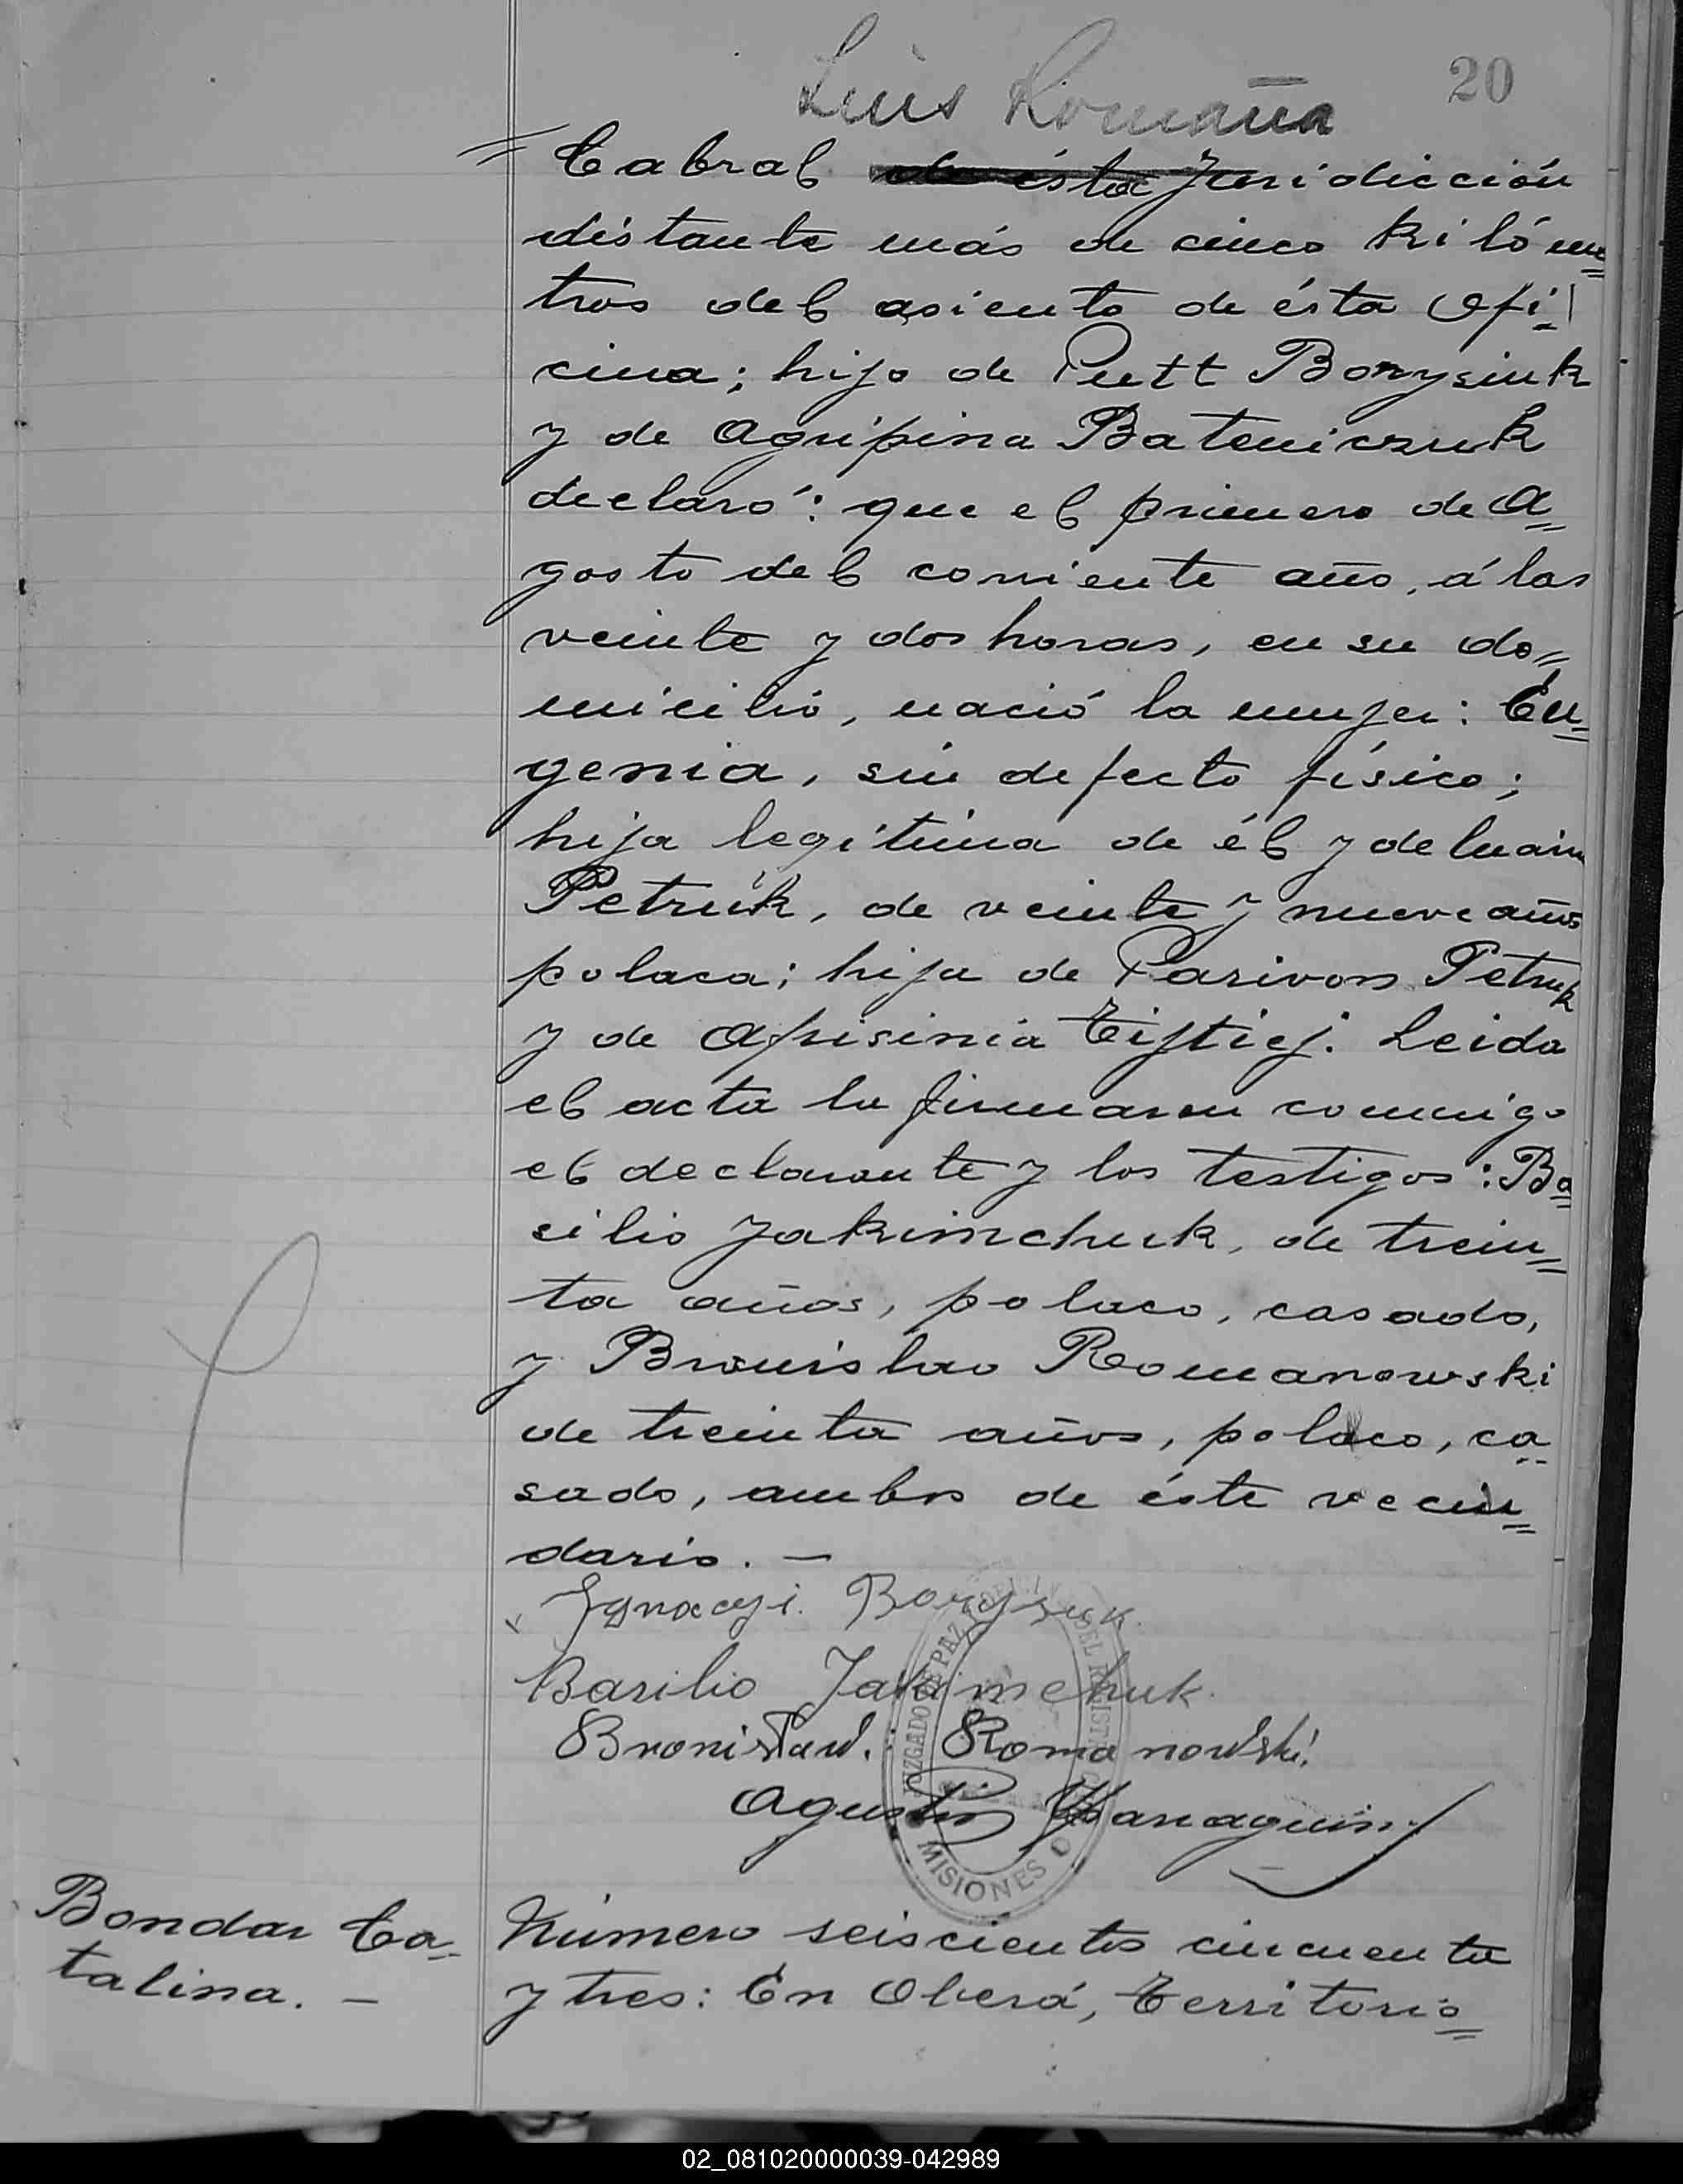 20
Luis Romaña
Cabral de ésta Juridicción
distante más de cinco kilóme=
tros del asiento de ésta Ofi=
cina; hijo de Pett Borysiuk
y de Agripina Bateniczuk
declaró: que el primero de A=
gosto del corriente año, á las
veinte y dos horas, en su do=
micilio, nació la mujer: Eu=
genia, sin defecto físico;
hija legítima de él y de
Petruk, de veinte y nueve años
polaca; hija de Parivon Petruk
y de Afrisinia Leida
el acta la firmaron conmigo
el declarante y los testigos: Ba=
silio Jakimchuk, de trein=
ta años, polaco, casado,
y Bronislao Romanowski
de treinta años, polaco, ca=
sado, ambos de éste vecin=
dario. —
Ignacyi. Borysiuk
Basilio Jakimchuk.
Bronisław. Romanowski.
Agustin
JUZGADO DE PAZ
MISIONES
Bondar Ca=
talina. —
Número seiscientos cincuenta
y tres: En Oberá, Territorio=
02_081020000039-042989